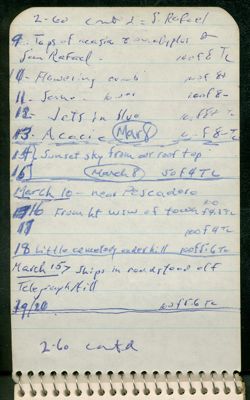 2-60 contd 2 = S. Rafael
9 - Tops of acacia & eucalyptus
San Rafael - 100 f 8 TC
10 - Flowering 100 f 8+
11 - Same. 100 f 8-
12 - Jets in blue f 8+ TC
13 - Acacia Mar 8 f-8 TC
14 Sunset sky from our roof top
15 March 8 50 f 4 TC
March 10 - near Pescadero
16 From ht wsw of town
17 100 f 4 TC
18 Little cemetery under hill 100 f 5.6 TC
March 15 > Ships in roadstead off
Telegraph Hill
19/20 100 f 5.6 TC
2-60 contd